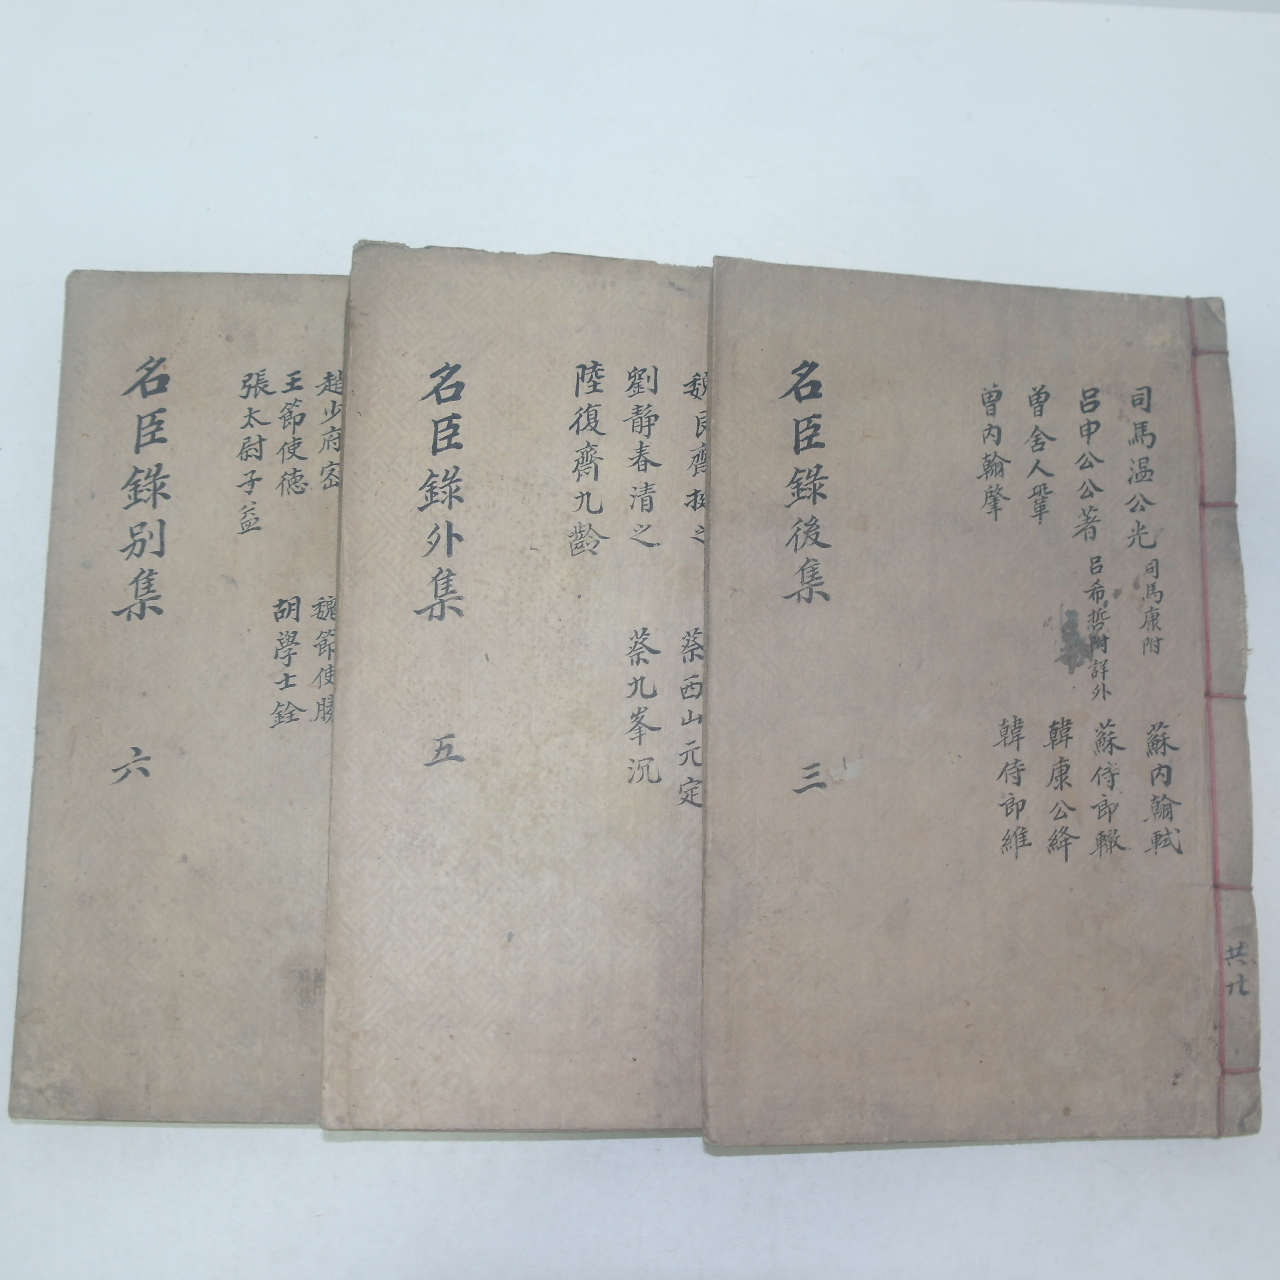 司馬温公光 司馬康附
呂申公公著 呂希哲附詳外
曾舍人鞏
曾內翰肇
蘇內翰軾
蘇侍郎轍
韓康公絳
韓侍郎維
名臣錄後集
三
共九
魏艮齋掞之
劉靜春清之
陸復齋九齡
蔡西山元定
蔡九峯沉
名臣錄外集
五
趙少府密
王節使德
張太尉子益
魏節使勝
胡學士銓
名臣錄别集
六